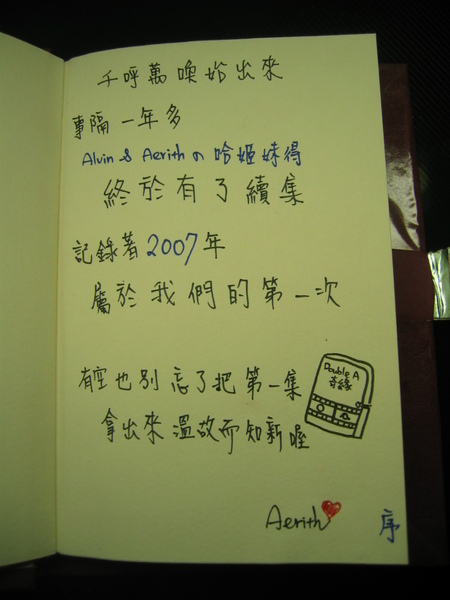 千呼萬喚始出來
事隔一年多
Alvin & Aerith の 哈姬妹得
終於有了續集
記錄著2007年
屬於我們的第一次
有空也別忘了把第一集
拿出來溫故而知新喔
Double A
奇緣
Aerith
序